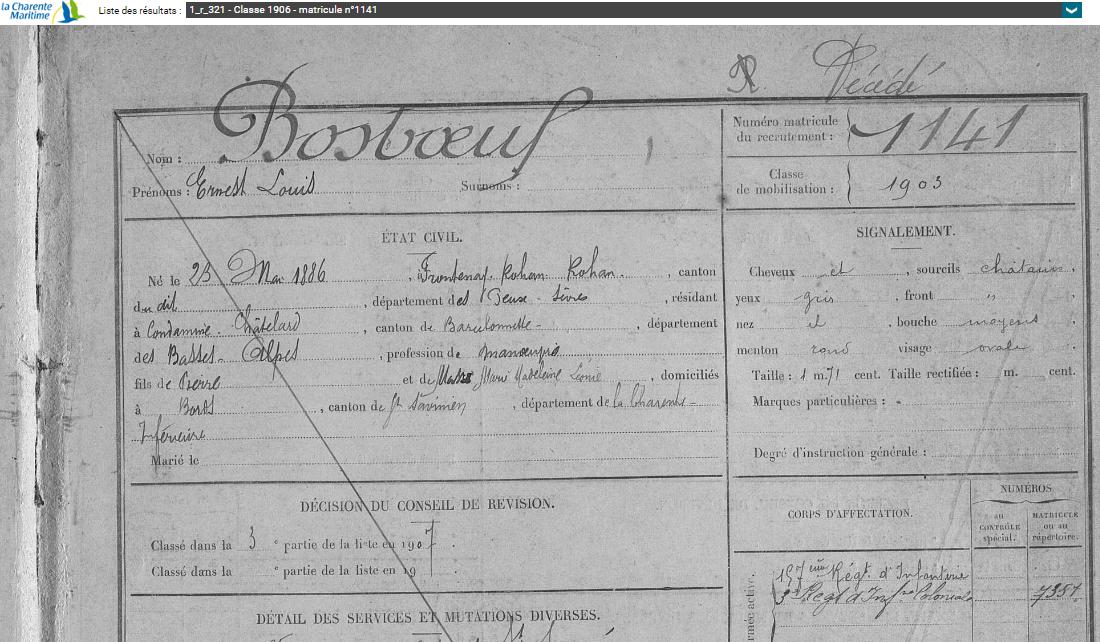 la Charente
Maritime
Liste des résultats : 1_r_321 - Classe 1906 - matricule n°1141
R Décédé
Nom : Bosbœuf
Numéro matricule du recrutement : 1141
Prénoms : Ernest Louis Surnoms :
Classe de mobilisation : 1903
ÉTAT CIVIL.
Né le 23 Mai 1886, à Frontenay Rohan Rohan, canton
du dit, département des Deux-Sèvres, résidant
à Condamine Châtelard, canton de Barcelonnette, département
des Basses-Alpes, profession de manœuvre
fils de Pierre et de Marie Madeleine, domiciliés
à Bords, canton de St Savinien, département de la Charente-
Inférieure
Marié le
SIGNALEMENT.
Cheveux et, sourcils châtains,
yeux gris, front "
nez et, bouche moyens
menton rond visage ovale
Taille : 1 m. 71 cent. Taille rectifiée : m. cent.
Marques particulières :
Degré d'instruction générale :
DÉCISION DU CONSEIL DE REVISION.
Classé dans la 3e partie de la liste en 1907.
Classé dans la e partie de la liste en 19 .
DÉTAIL DES SERVICES ET MUTATIONS DIVERSES.
CORPS D'AFFECTATION.
NUMÉROS
au CONTRÔLE spécial.
MATRICULE ou au répertoire.
157ème Régt d'Infanterie
3e Régt d'Infrie Coloniale 7357